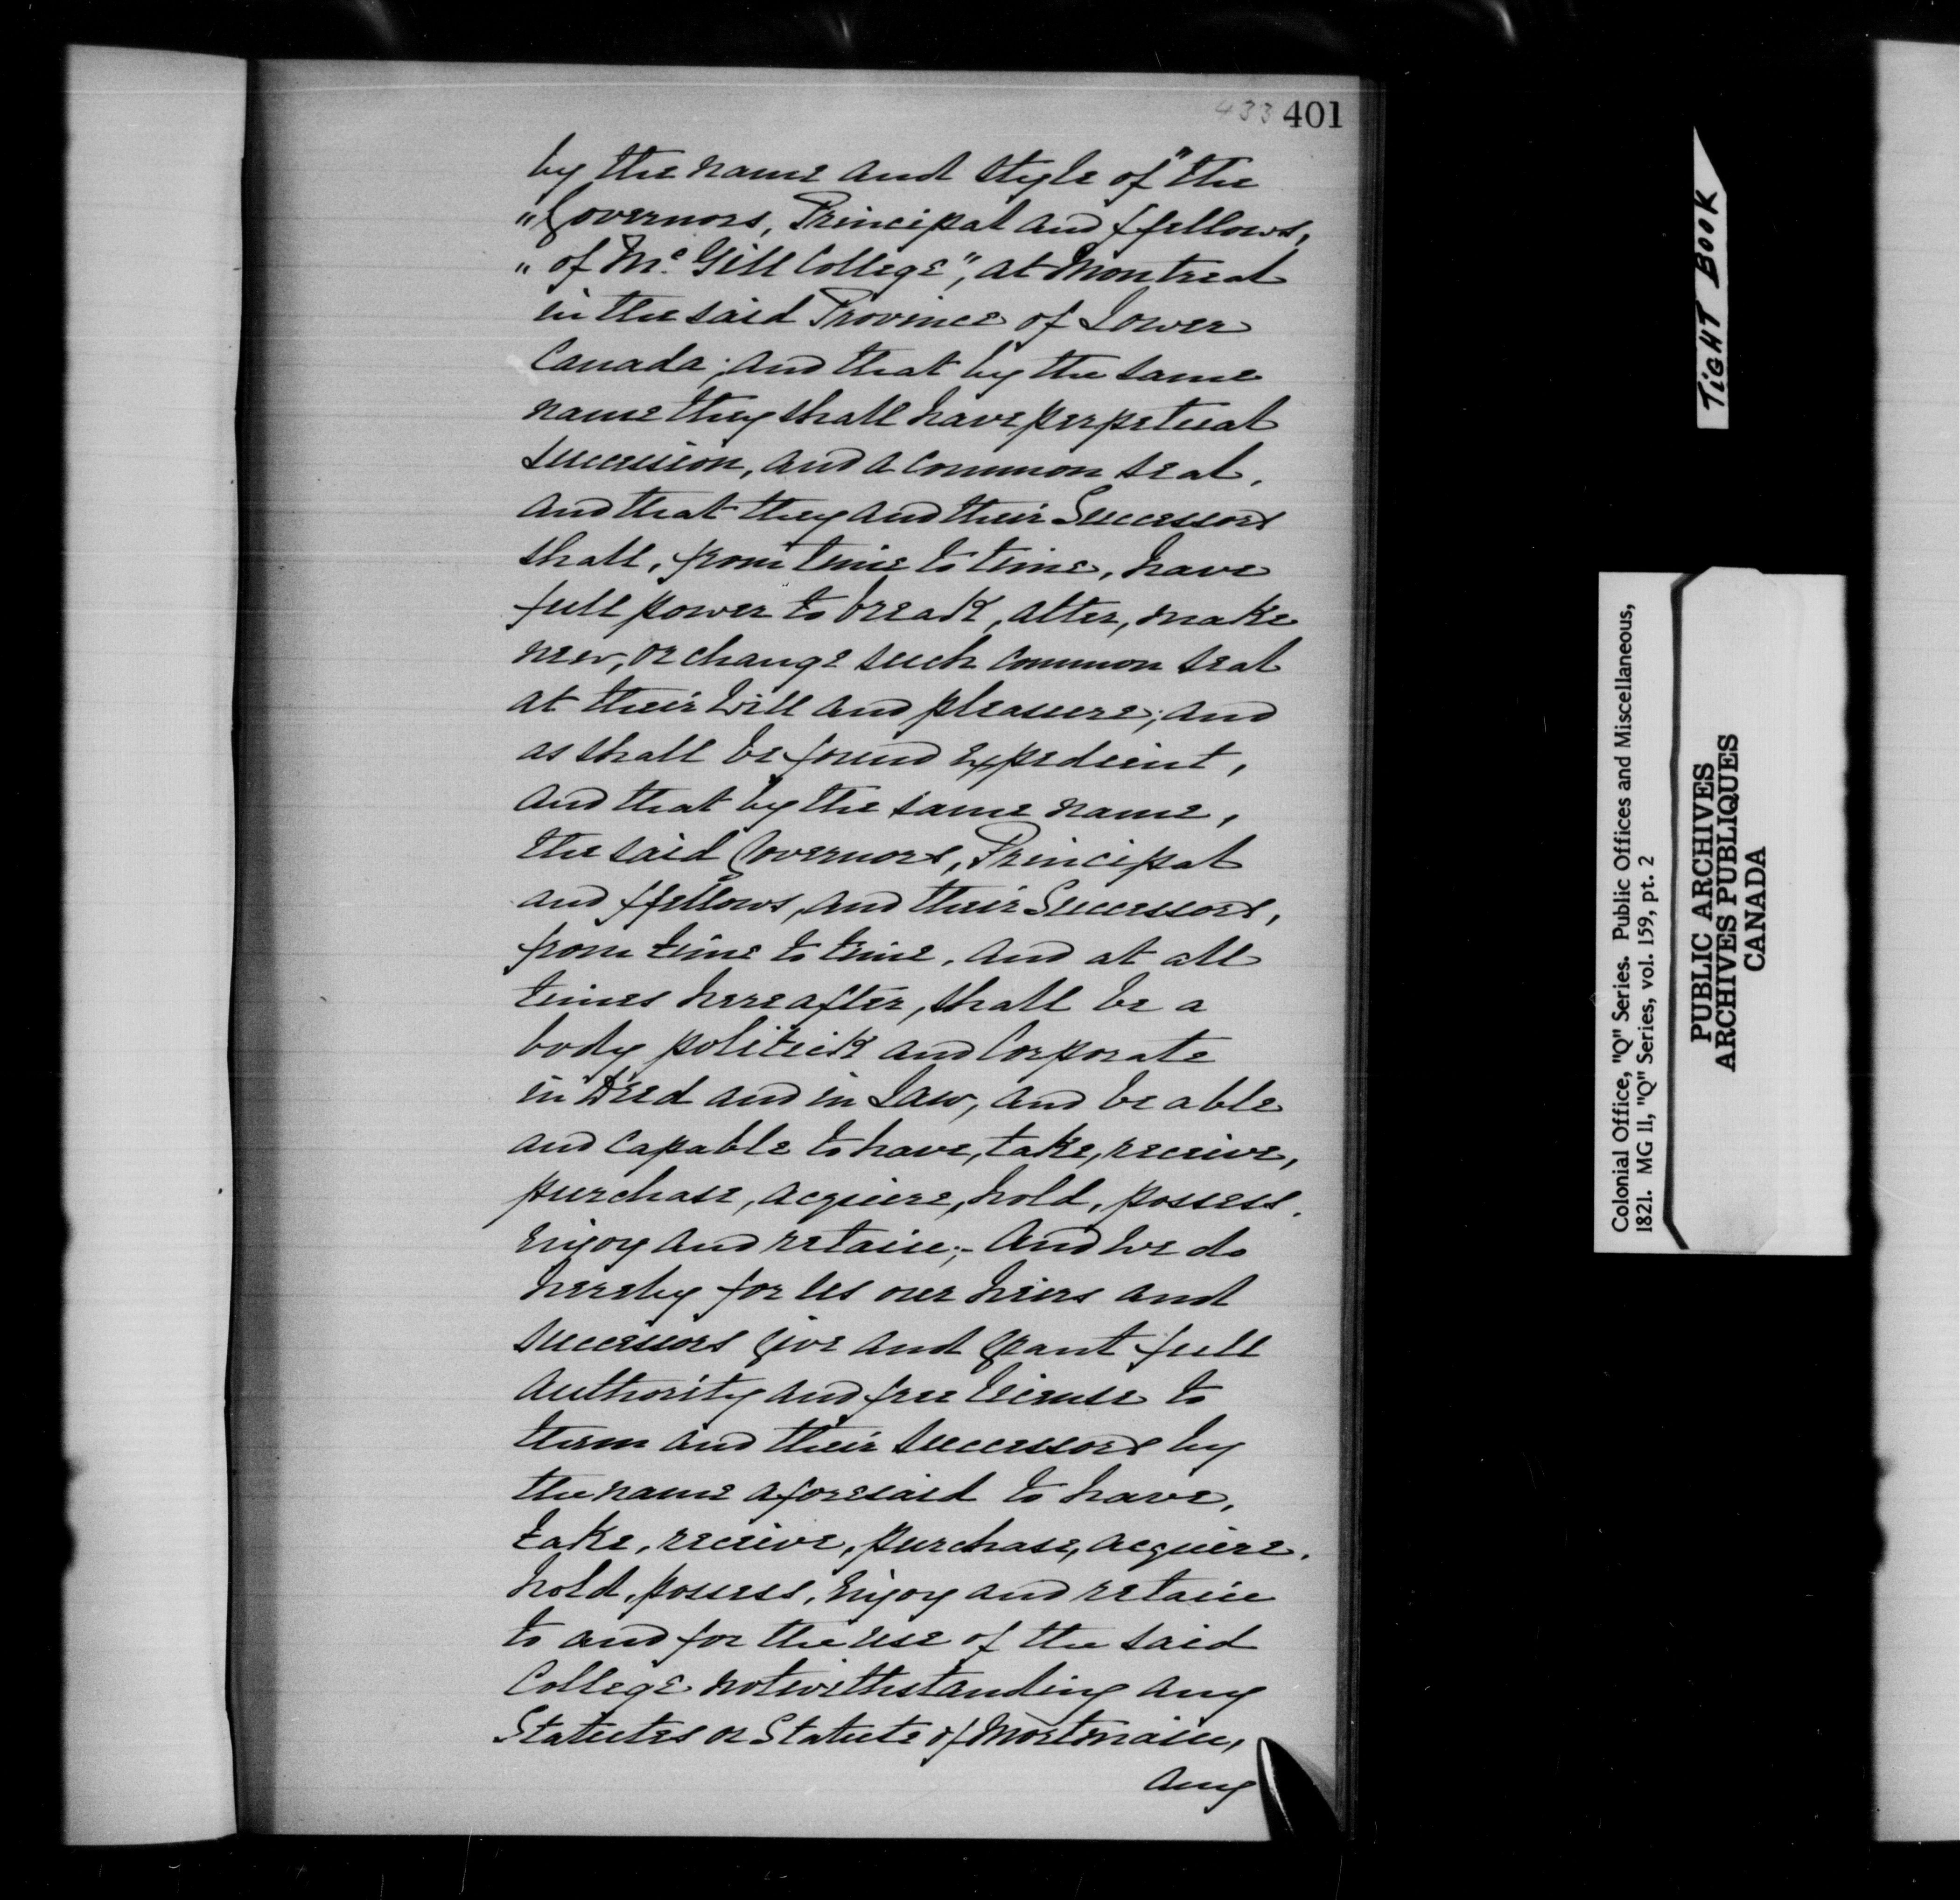 433 401
by the name and style of "the
"Governors, Principal and ffellows,
"of McGill College", at Montreal
in the said Province of Lower
Canada; and that by the same
name they shall have perpetual
succession, and a common seal,
and that they and their Successors
shall, from time to time, have
full power to break, alter, make
new, or change such common seal
at their will and pleasure; and
as shall be found expedient,
and that by the same name,
the said Governors, Principal
and ffellows, and their Successors,
from time to time, and at all
times hereafter, shall be a
body politick and Corporate
in Deed and in Law, and be able
and capable to have, take, receive,
purchase, acquire, hold, possess,
enjoy and retain;- And we do
hereby for us our heirs and
successors give and grant full
authority and free license to
them and their successors by
the name aforesaid to have,
take, receive, purchase, acquire,
hold, possess, enjoy and retain
to and for the use of the said
College notwithstanding any
Statutes or Statute of Mortmain,
any
TiGHT BOOK
Colonial Office, "Q" Series. Public Offices and Miscellaneous,
1821. MG 11, "Q" Series, vol. 159, pt. 2
PUBLIC ARCHIVES
ARCHIVES PUBLIQUES
CANADA